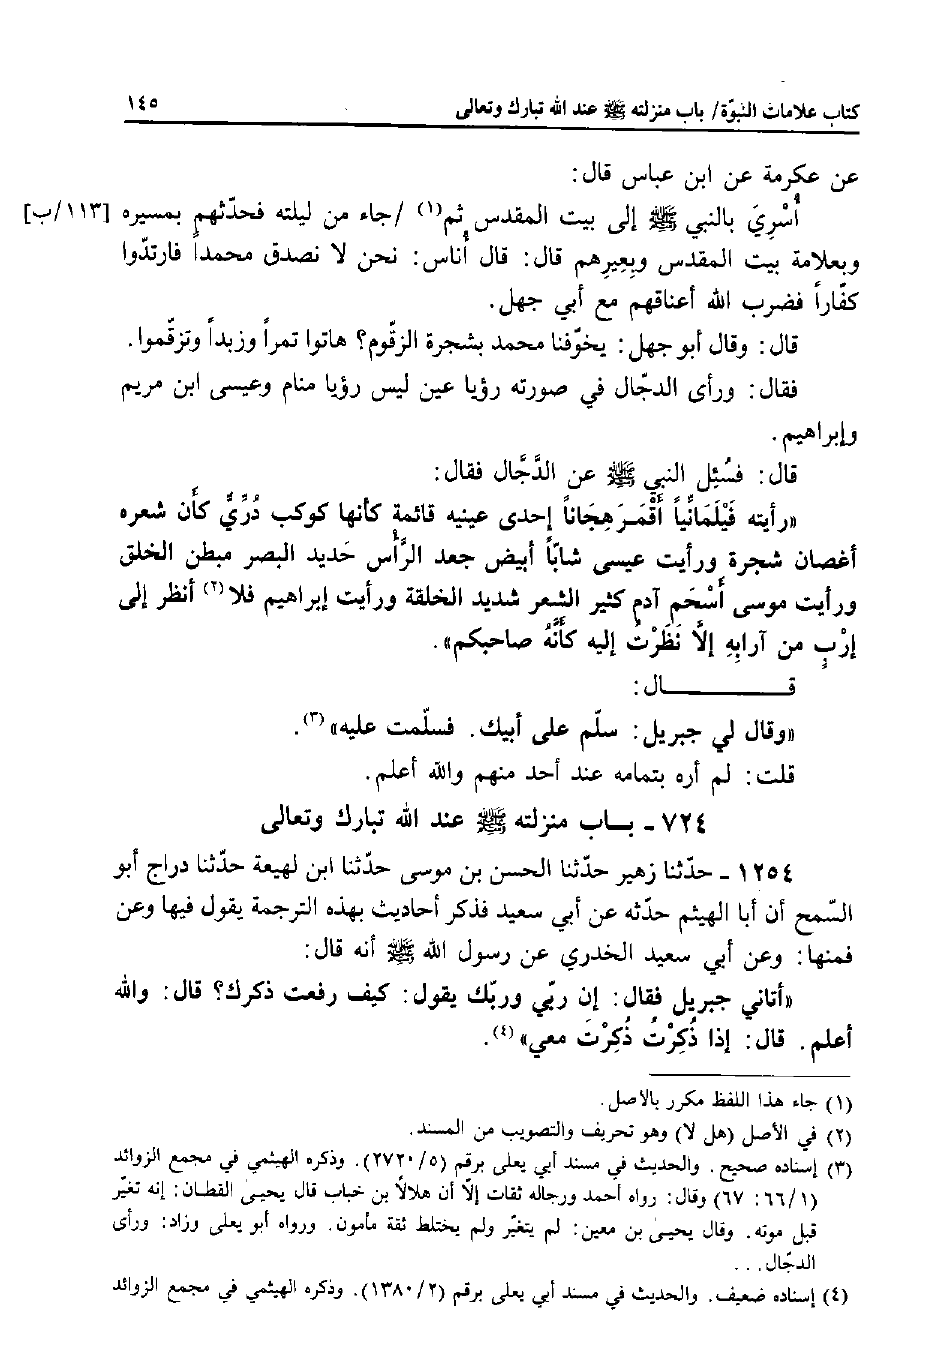 كتاب علامات النبوّة/ باب منزلته ﷺ عند الله تبارك وتعالى ١٤٥
عن عكرمة عن ابن عباس قال:
أُسْرِيَ بالنبي ﷺ إلى بيت المقدس ثم(١) /جاء من ليلته فحدّثهم بمسيره [١١٣/ب]
وبعلامة بيت المقدس وبِعيرِهم قال: قال أُناس: نحن لا نصدق محمداً فارتدّوا
كفّاراً فضرب الله أعناقهم مع أبي جهل.
قال: وقال أبو جهل: يخوّفنا محمد بشجرة الزقّوم؟ هاتوا تمراً وزبداً وتزقّموا.
فقال: ورأى الدجّال في صورته رؤيا عين ليس رؤيا منام وعيسى ابن مريم
وإبراهيم.
قال: فسُئِل النبي ﷺ عن الدَّجَّال فقال:
«رأيته فَيْلَمَانِّياً أَقْمَرَ هِجَاناً إحدى عينيه قائمة كأنها كوكب دُرِّيٌّ كأن شعره
أغصان شجرة ورأيت عيسى شابّاً أبيض جعد الرَّأْس حَديد البصر مبطن الخلق
ورأيت موسى أَسْحَم آدم كثير الشعر شديد الخلقة ورأيت إبراهيم فلا(٢) أنظر إلى
إرْبٍ من آرابِهِ إلَّا نَظَرْتُ إليه كَأَنَّهُ صاحبكم».
قـــــــــال:
«وقال لي جبريل: سلّم على أبيك. فسلّمت عليه»(٣).
قلت: لم أره بتمامه عند أحد منهم والله أعلم.
٧٢٤ - بــاب منزلته ﷺ عند الله تبارك وتعالى
١٢٥٤ - حدّثنا زهير حدّثنا الحسن بن موسى حدّثنا ابن لهيعة حدّثنا دراج أبو
السّمح أن أبا الهيثم حدّثه عن أبي سعيد فذكر أحاديث بهذه الترجمة يقول فيها وعن
فمنها: وعن أبي سعيد الخدري عن رسول الله ﷺ أنه قال:
«أتاني جبريل فقال: إن ربّي وربّك يقول: كيف رفعت ذكرك؟ قال: والله
أعلم. قال: إذا ذُكِرْتُ ذُكِرْتَ معي»(٤).
(١) جاء هذا اللفظ مكرر بالأصل.
(٢) في الأصل (هل لا) وهو تحريف والتصويب من المسند.
(٣) إسناده صحيح. والحديث في مسند أبي يعلى برقم (٢٧٢٠/٥). وذكره الهيثمي في مجمع الزوائد
(٦٦/١: ٦٧) وقال: رواه أحمد ورجاله ثقات إلّا أن هلالًا بن خباب قال يحيىٰ القطان: إنه تغيّر
قبل موته. وقال يحيىٰ بن معين: لم يتغيّر ولم يختلط ثقة مأمون. ورواه أبو يعلى وزاد: ورأى
الدجّال...
(٤) إسناده ضعيف. والحديث في مسند أبي يعلى برقم (١٣٨٠/٢). وذكره الهيثمي في مجمع الزوائد